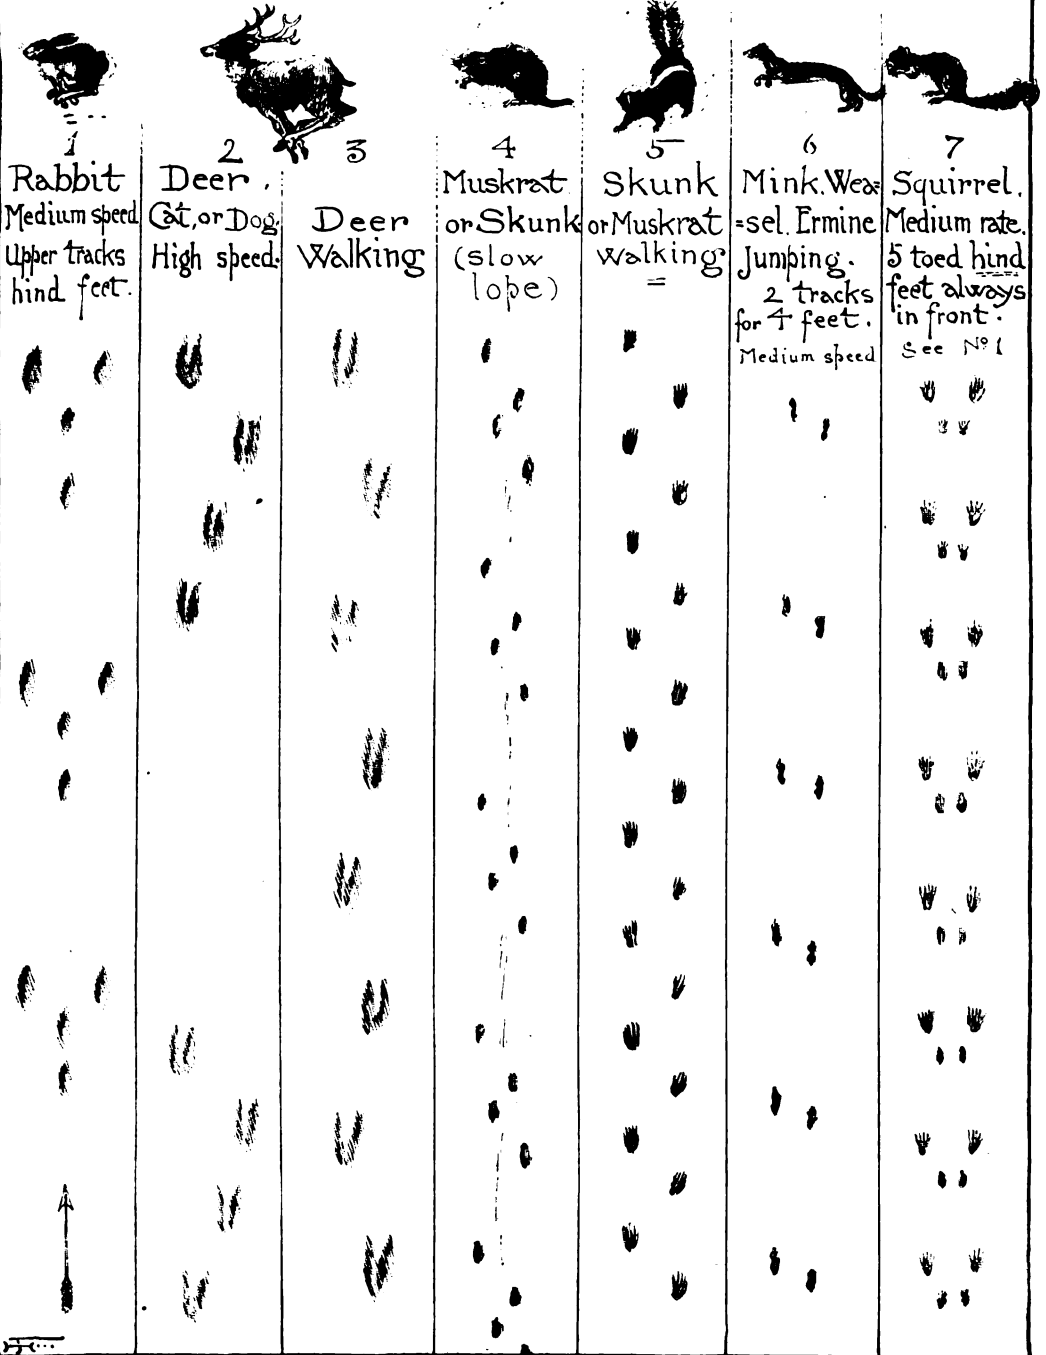 1
Rabbit
Medium speed
Upper tracks
hind feet.
2
Deer,
Cat, or Dog,
High speed.
3
Deer
Walking
4
Muskrat
or Skunk
(slow
lope)
5
Skunk
or Muskrat
walking
=
6
Mink, Wea=
=sel. Ermine
Jumping.
2 tracks
for 4 feet.
Medium speed
7
Squirrel.
Medium rate.
5 toed hind
feet always
in front.
See No 1